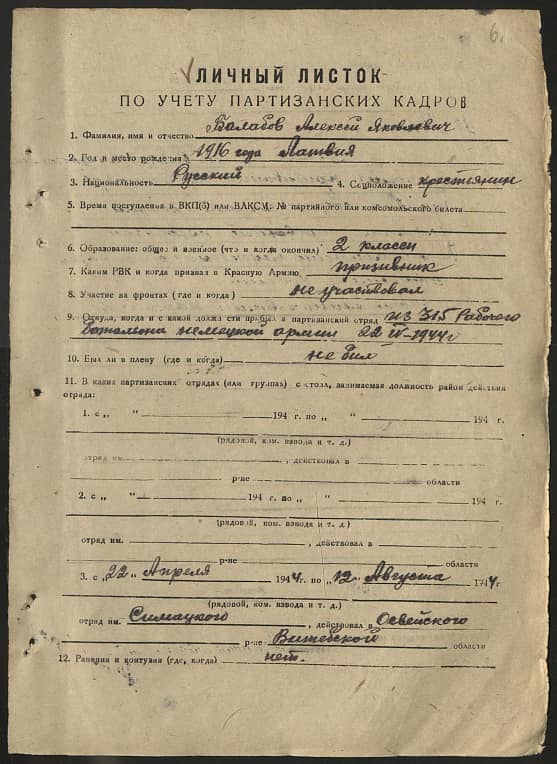 6.
ЛИЧНЫЙ ЛИСТОК
ПО УЧЕТУ ПАРТИЗАНСКИХ КАДРОВ
1. Фамилия, имя и отчество Балабов Алексей Яковлевич
2. Год и место рождения 1916 года Латвия
3. Национальность Русский 4. Соцположение крестянин
5. Время поступления в ВКП(б) или ВЛКСМ, № партийного или комсомольского билета
6. Образование: общее и военное (что и когда окончил) 2 классы
7. Каким РВК и когда призван в Красную Армию призивник
8. Участие на фронтах (где и когда) не участвовал
9. Откуда, когда и с какой должности прибыл в партизанский отряд из 315 Рабочего
ботолиона немецкой армии 22 IV-1944 г
10. Был ли в плену (где и когда) не бил
11. В каких партизанских отрядах (или группах) состоял, занимаемая должность район действия
отряда:
1. с „ “ 194 г. по „ “ 194 г.
(рядовой, ком. взвода и т. д.)
отряд им. , действовал в
р-не области
2. с „ “ 194 г. по „ “ 194 г.
(рядовой, ком. взвода и т. д.)
отряд им. , действовал в
р-не области
3. с „22“ Апреля 1944 г. по „12“ Августа 1944 г.
(рядовой, ком. взвода и т. д.)
отряд им. Симацкого, действовал в Освейского
р-не Витебской области
12. Ранения и контузии (где, когда) нет.